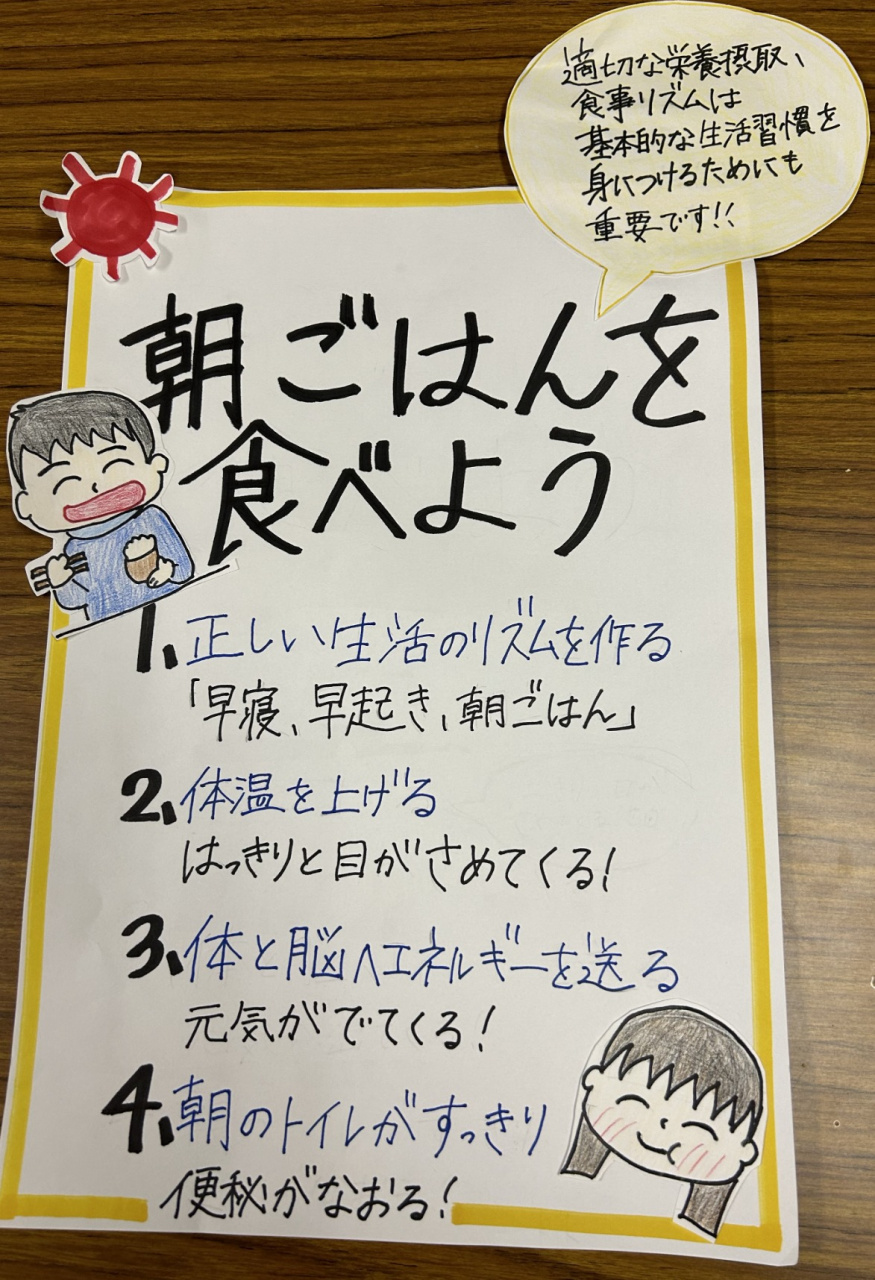 適切な栄養摂取、
食事リズムは
基本的な生活習慣を
身につけるためにも
重要です!!
朝ごはんを
食べよう
1、正しい生活のリズムを作る
「早寝、早起き、朝ごはん」
2、体温を上げる
はっきりと目がさめてくる!
3、体と脳へエネルギーを送る
元気がでてくる!
4、朝のトイレがすっきり
便秘がなおる!